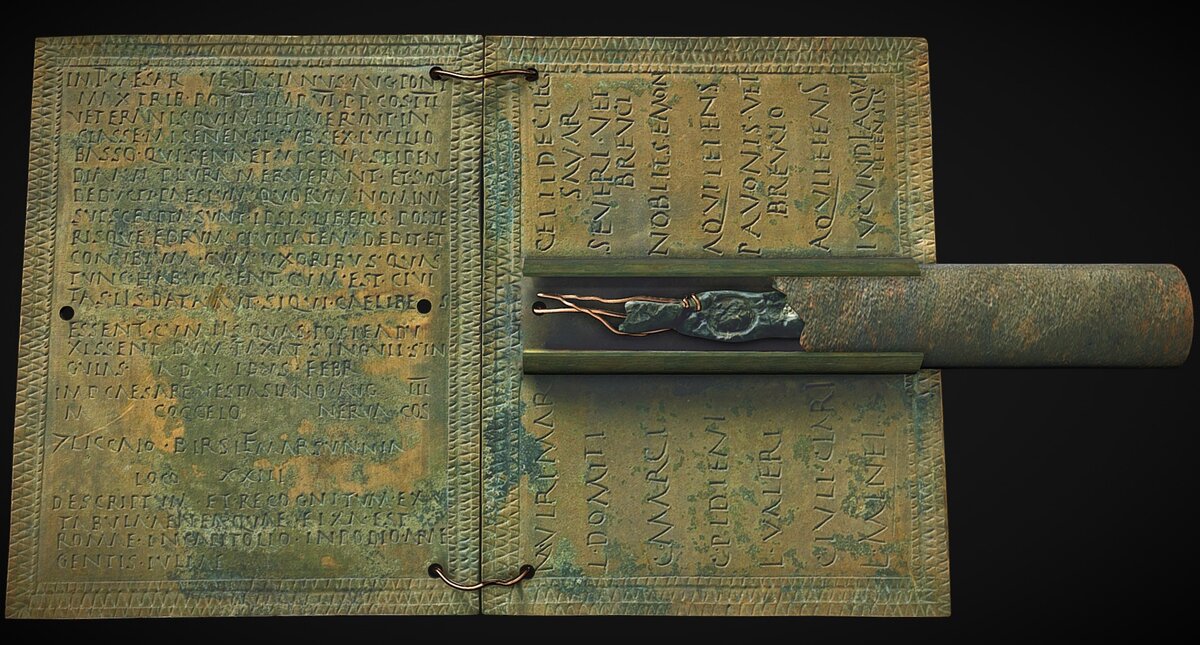 IMP CAESAR VESPASIANVS AVG PONT
MAX TRIB POT II IMP VI P P COS III
VETERANIS QVI MILITAVERVNT IN
CLASSE MISENENSI SVB SEX LVCILIO
BASSO QVI SENA ET VICENA STIPEN
DIA AVT PLVRA MERVERANT ET SVNT
DEDVCTI PAESTVM QVORVM NOMINA
SVBSCRIPTA SVNT IPSIS LIBERIS POSTE
RISQVE EORVM CIVITATEM DEDIT ET
CONVBIVM CVM VXORIBVS QVAS
TVNC HABVISSENT CVM EST CIVI
TAS IIS DATA AVT SIQVI CAELIBES
ESSENT CVM IIS QVAS POSTEA DV
XISSENT DVM TAXAT SINGVLI SIN
GVLAS IDVS FEBR
IMP CAESARE VESPASIANO AVG III
M COCCEIO NERVA COS
LOCO XXIII
DESCRIPTVM ET RECOGNITVM EX
TABVLA AENEA QVAE FIXA EST
ROMAE IN CAPITOLIO IN PODIO ARAE
GENTIS IVLIAE
SAVAR
L DOMITI SEVERI VEI
BREVCI
C MARCI NOBILIS EMON
AQVILEIENS
L VALERI PAVONIS VEI
BREVCIO
C IVLI CLARI AQVILEIENS
L IVCVNDI AQVI
LEIENSIS